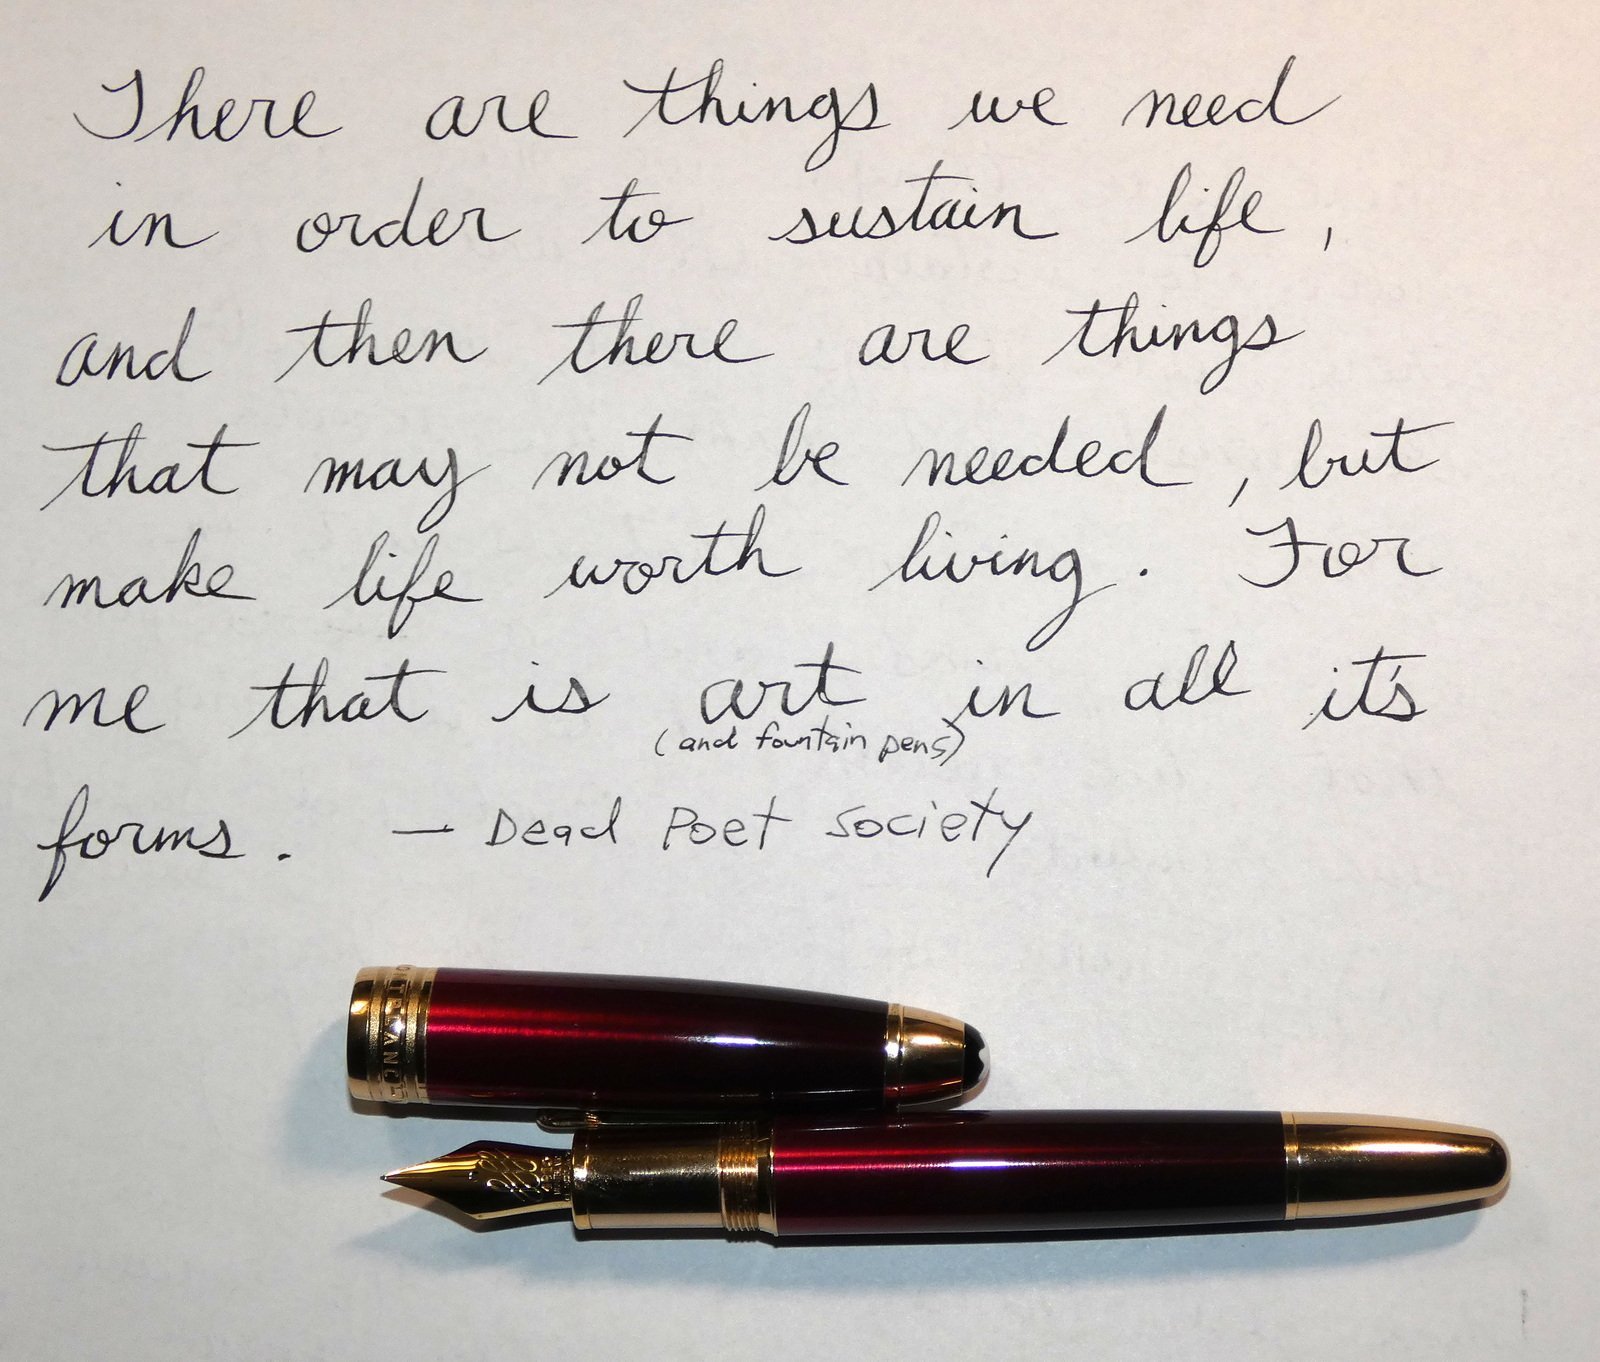 There are things we need
in order to sustain life,
and then there are things
that may not be needed, but
make life worth living. For
me that is art in all it's
(and fountain pens)
forms. — Dead Poet Society
MONTBLANC